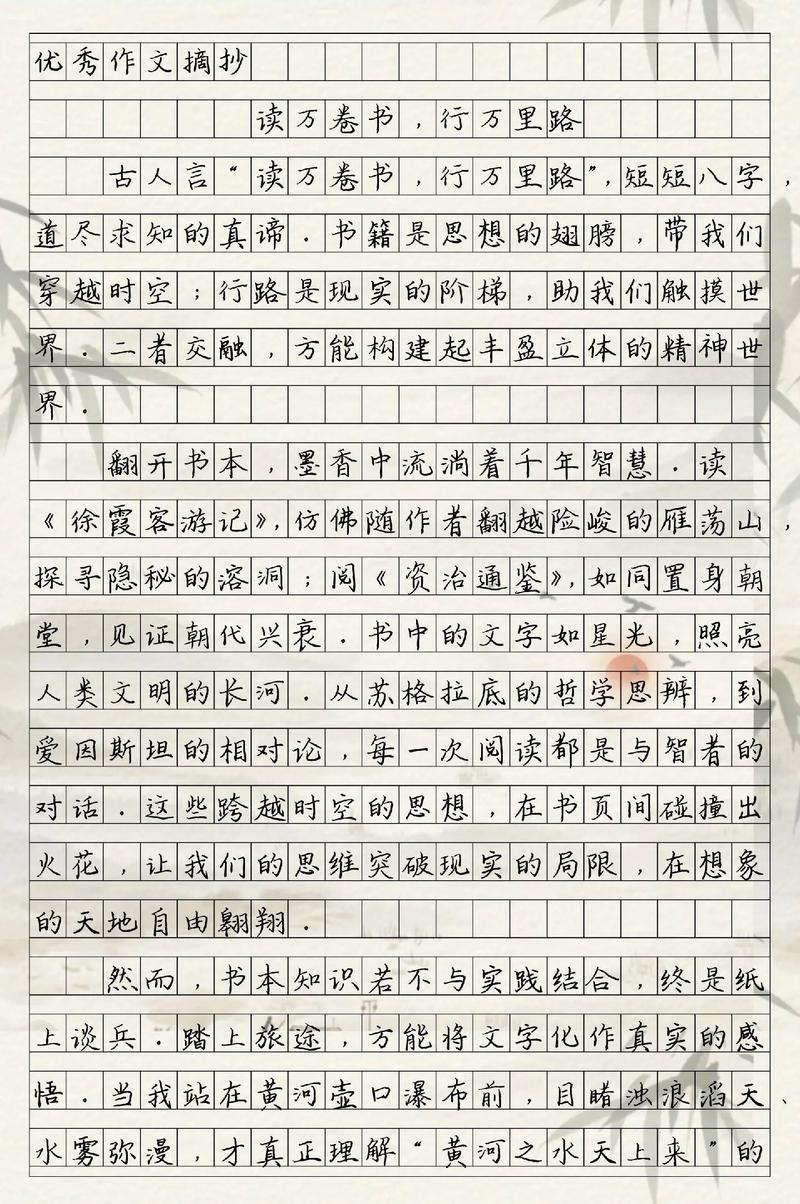 优秀作文摘抄
读万卷书，行万里路
古人言“读万卷书，行万里路”，短短八字，
道尽求知的真谛．书籍是思想的翅膀，带我们
穿越时空；行路是现实的阶梯，助我们触摸世
界．二者交融，方能构建起丰盈立体的精神世
界．
翻开书本，墨香中流淌着千年智慧．读
《徐霞客游记》，仿佛随作者翻越险峻的雁荡山，
探寻隐秘的溶洞；阅《资治通鉴》，如同置身朝
堂，见证朝代兴衰．书中的文字如星光，照亮
人类文明的长河．从苏格拉底的哲学思辨，到
爱因斯坦的相对论，每一次阅读都是与智者的
对话．这些跨越时空的思想，在书页间碰撞出
火花，让我们的思维突破现实的局限，在想象
的天地自由翱翔．
然而，书本知识若不与实践结合，终是纸
上谈兵．踏上旅途，方能将文字化作真实的感
悟．当我站在黄河壶口瀑布前，目睹浊浪滔天、
水雾弥漫，才真正理解“黄河之水天上来”的